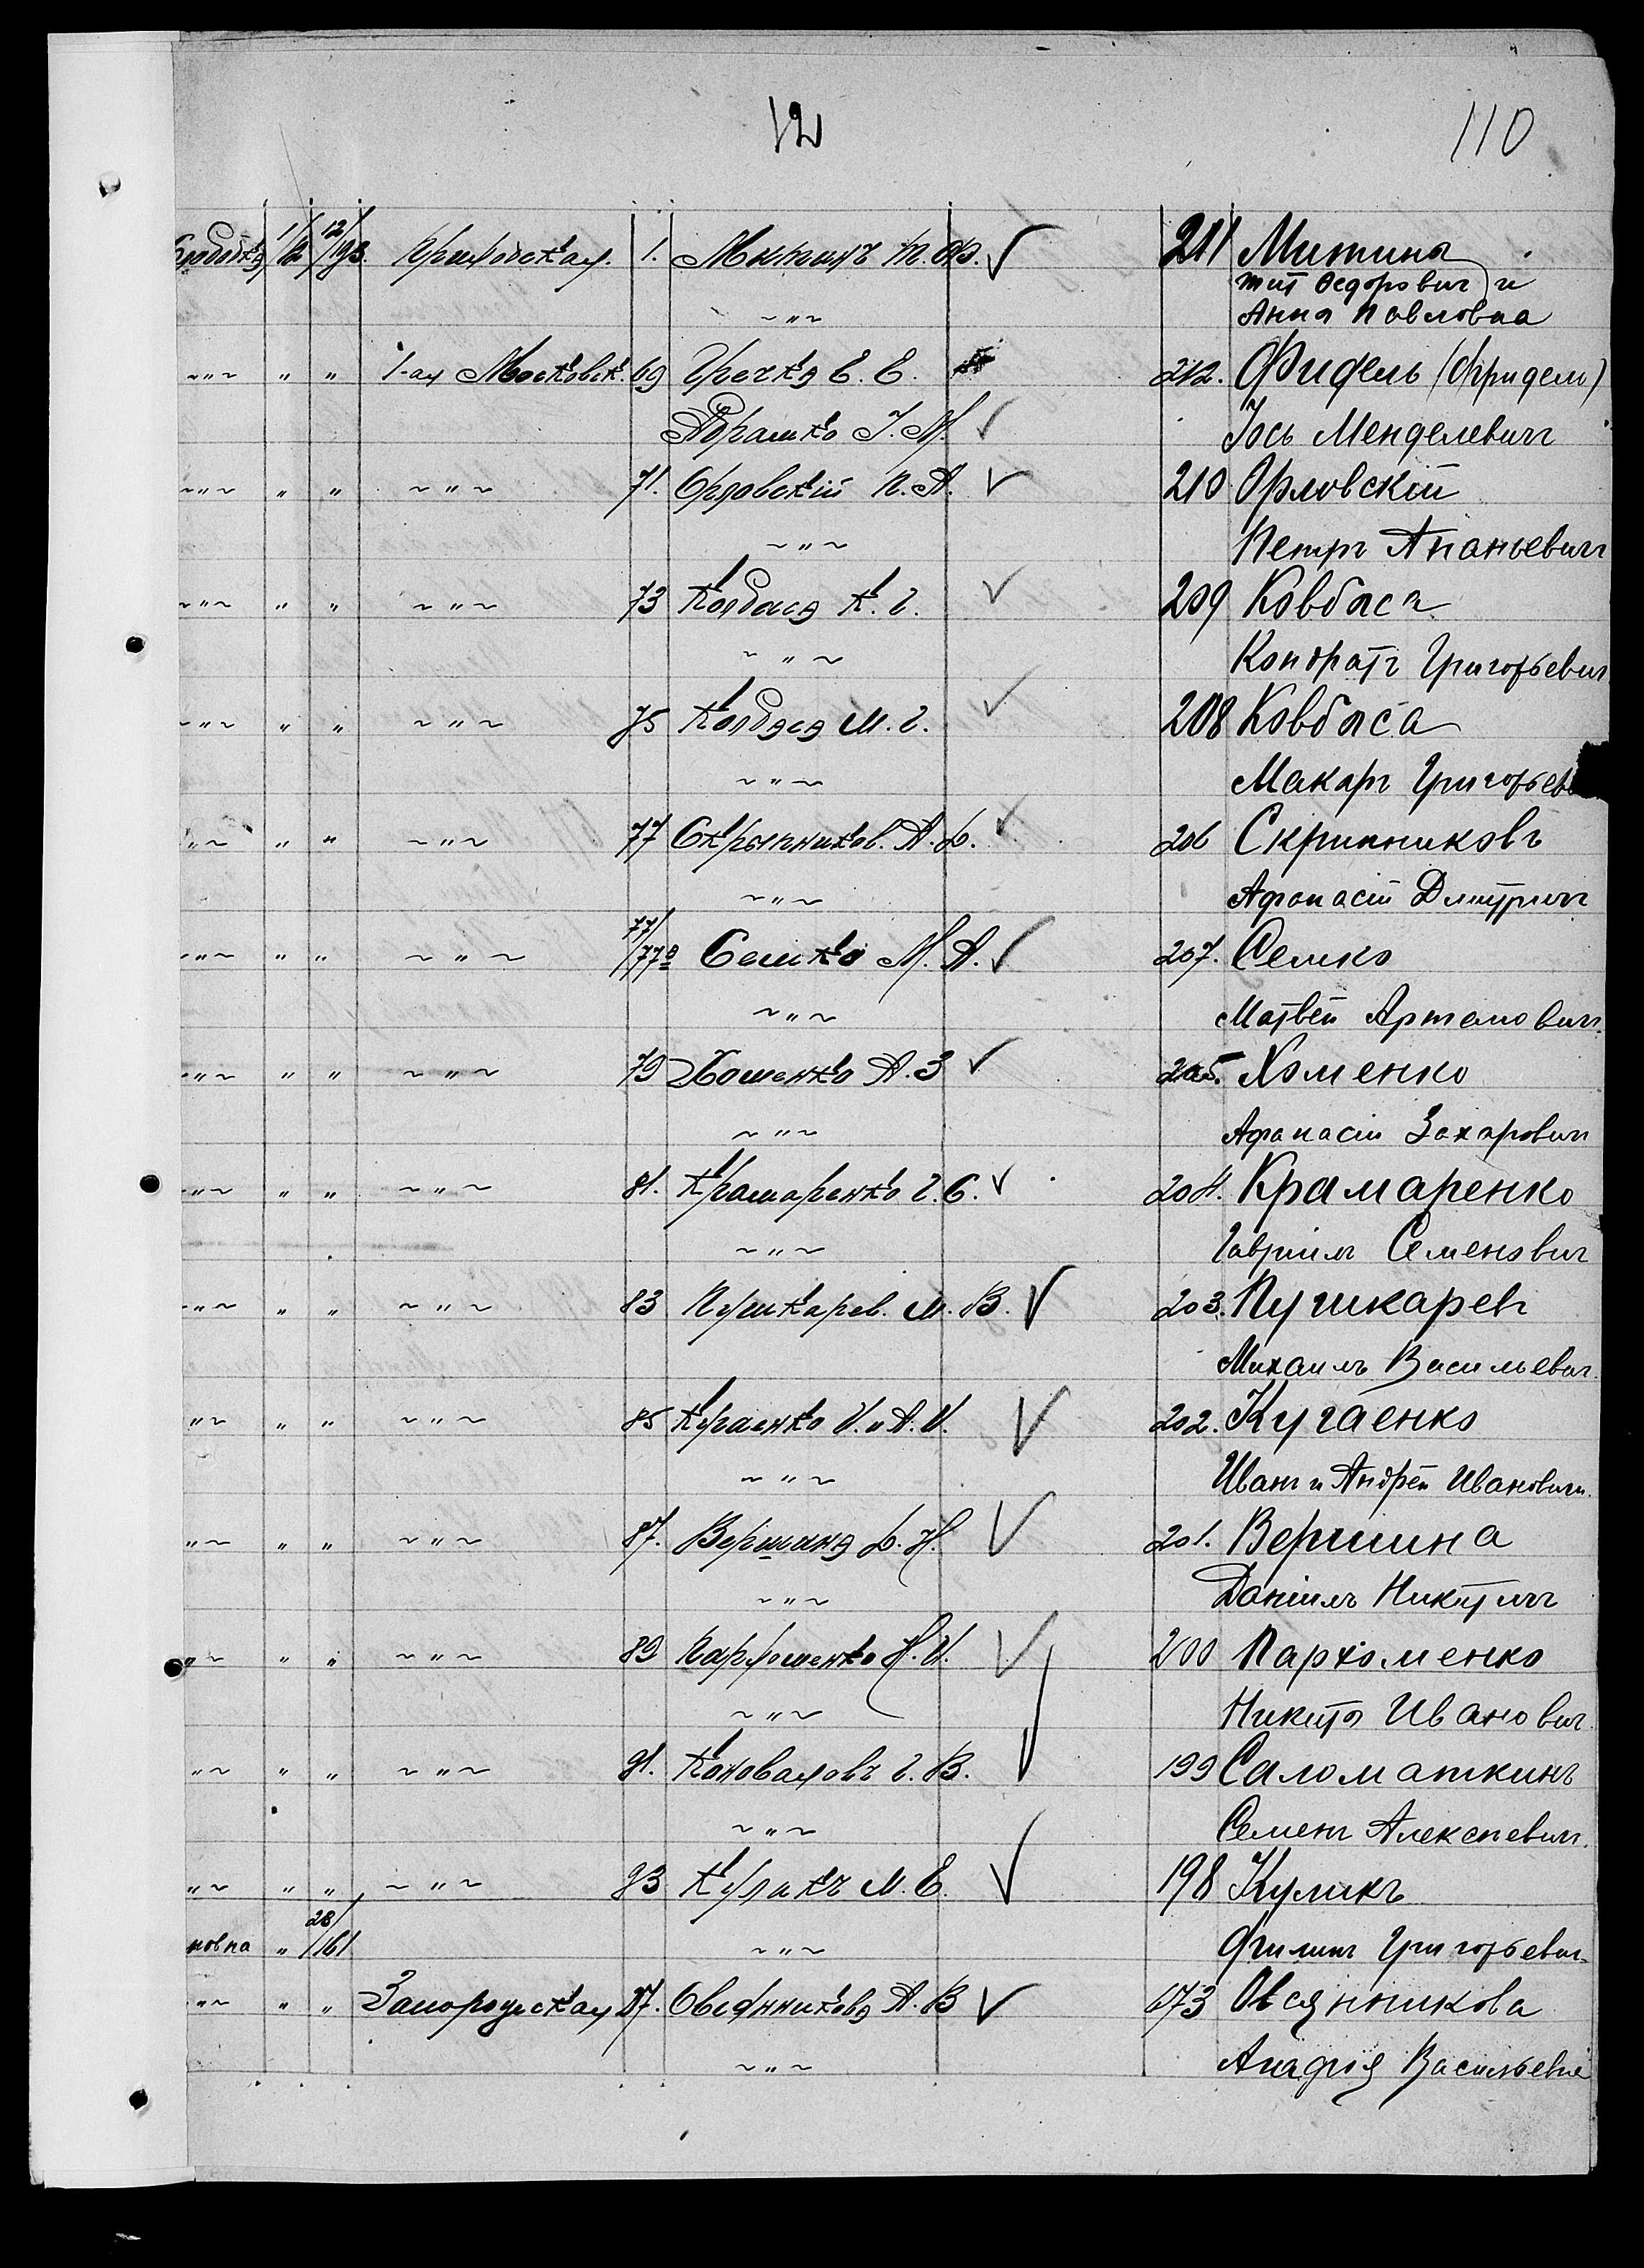 12
110
1/2 12/193. Приходская. 1. Митинъ Т. Ф. 211 Митина
Тит Федорович и
~ " ~ Анна Павловна
~ " ~ " " 1-ая Московск. 69 Гречка Е. Е. 212. Фидель (Фридель)
Абрамко І. М. Іось Менделевичъ
~ " ~ " " ~ " ~ 71. Орловскій П. А. 210 Орловскій
~ " ~ Петръ Ананьевичъ
~ " ~ " " ~ " ~ 73 Колбаса К. Г. 209 Ковбаса
~ " ~ Кондратъ Григорьевич
~ " ~ " " ~ " ~ 75 Колбаса М. Г. 208 Ковбаса
~ " ~ Макаръ Григорьев
~ " ~ " " ~ " ~ 77 Скрыпников. А. Д. 206 Скрипниковъ
~ " ~ Афанасій Дмитричъ
~ " ~ " " ~ " ~ 77/77а Семко М. А. 207. Семко
~ " ~ Матвѣй Артемовичъ
~ " ~ " " ~ " ~ 79 Хоменко А. З 205. Хоменко
~ " ~ Афанасій Захарович
~ " ~ " " ~ " ~ 81. Крамаренко Г. С. 204. Крамаренко
~ " ~ Гавріилъ Семенович
~ " ~ " " ~ " ~ 83 Пушкарев. М. В. 203. Пушкаревъ
Михаилъ Васильевич.
~ " ~ " " ~ " ~ 85 Кугаенко И. и А. И. 202. Кугаенко
~ " ~ Иванъ и Андрей Ивановичи.
~ " ~ " " ~ " ~ 87. Вершина Д. Н. 201. Вершина
~ " ~ Даніилъ Никитичъ
~ " ~ " " ~ " ~ 89 Пархоменко Н. И. 200 Пархоменко
~ " ~ Никита Иванович
~ " ~ " " ~ " ~ 91. Коноваловъ Г. В. 199 Саломаткинъ
~ " ~ Семенъ Алексѣевич.
~ " ~ " " ~ " ~ 93 М. Е. 198 Куликъ
новка " 28/161 ~ " ~ Филипъ Григорьевич.
~ " ~ " " Запорожская 87. Овсянникова А. В 173 Овсянникова
~ " ~ Васильевна